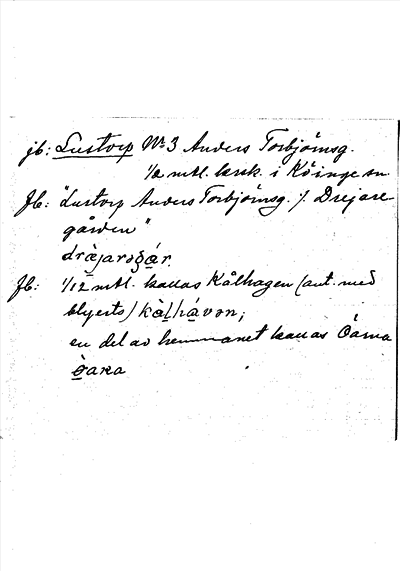 jb: Lustorp Nr 3 Anders Torbjörnsg.
1/2 mtl. krsk. i Köinge sn
Jb: "Lustorp Anders Torbjörnsg. /. Drejare-
gården"
dràjaregá̱r.
Jb: 1/12 mtl. kallas Kålhagen (ant. med
blyerts) kà̱lhá̱vən;
en del av hemmanet kallas Öarna
ø̱̀ara